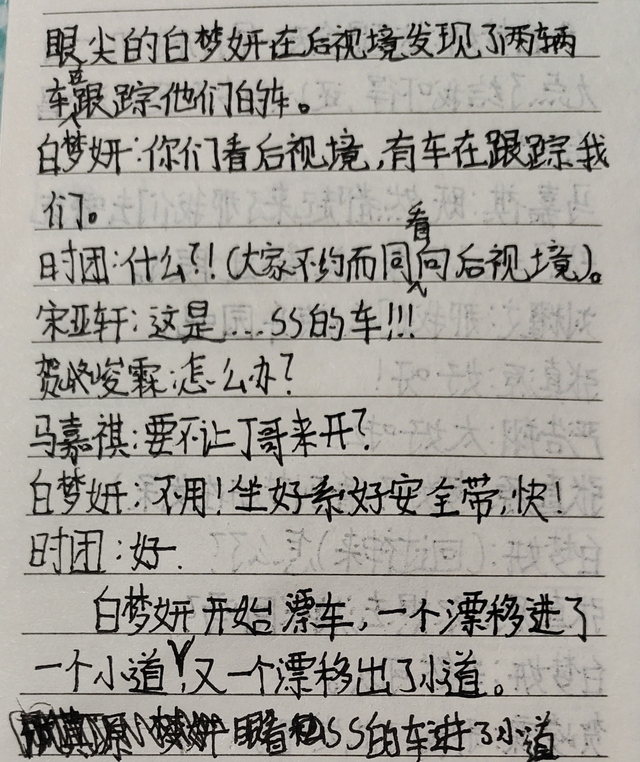 眼尖的白梦妍在后视境发现了两辆
车跟踪他们的车。
白梦妍:你们看后视境,有车在跟踪我
们。
时团:什么?!(大家不约而同看向后视境)。
宋亚轩:这是...SS的车!!!
贺峻霖:怎么办?
马嘉祺:要不让丁哥来开?
白梦妍:不用!坐好系好安全带,快!
时团:好.
白梦妍开始漂车,一个漂移进了
一个小道,又一个漂移出了小道。
眼看SS的车进了小道